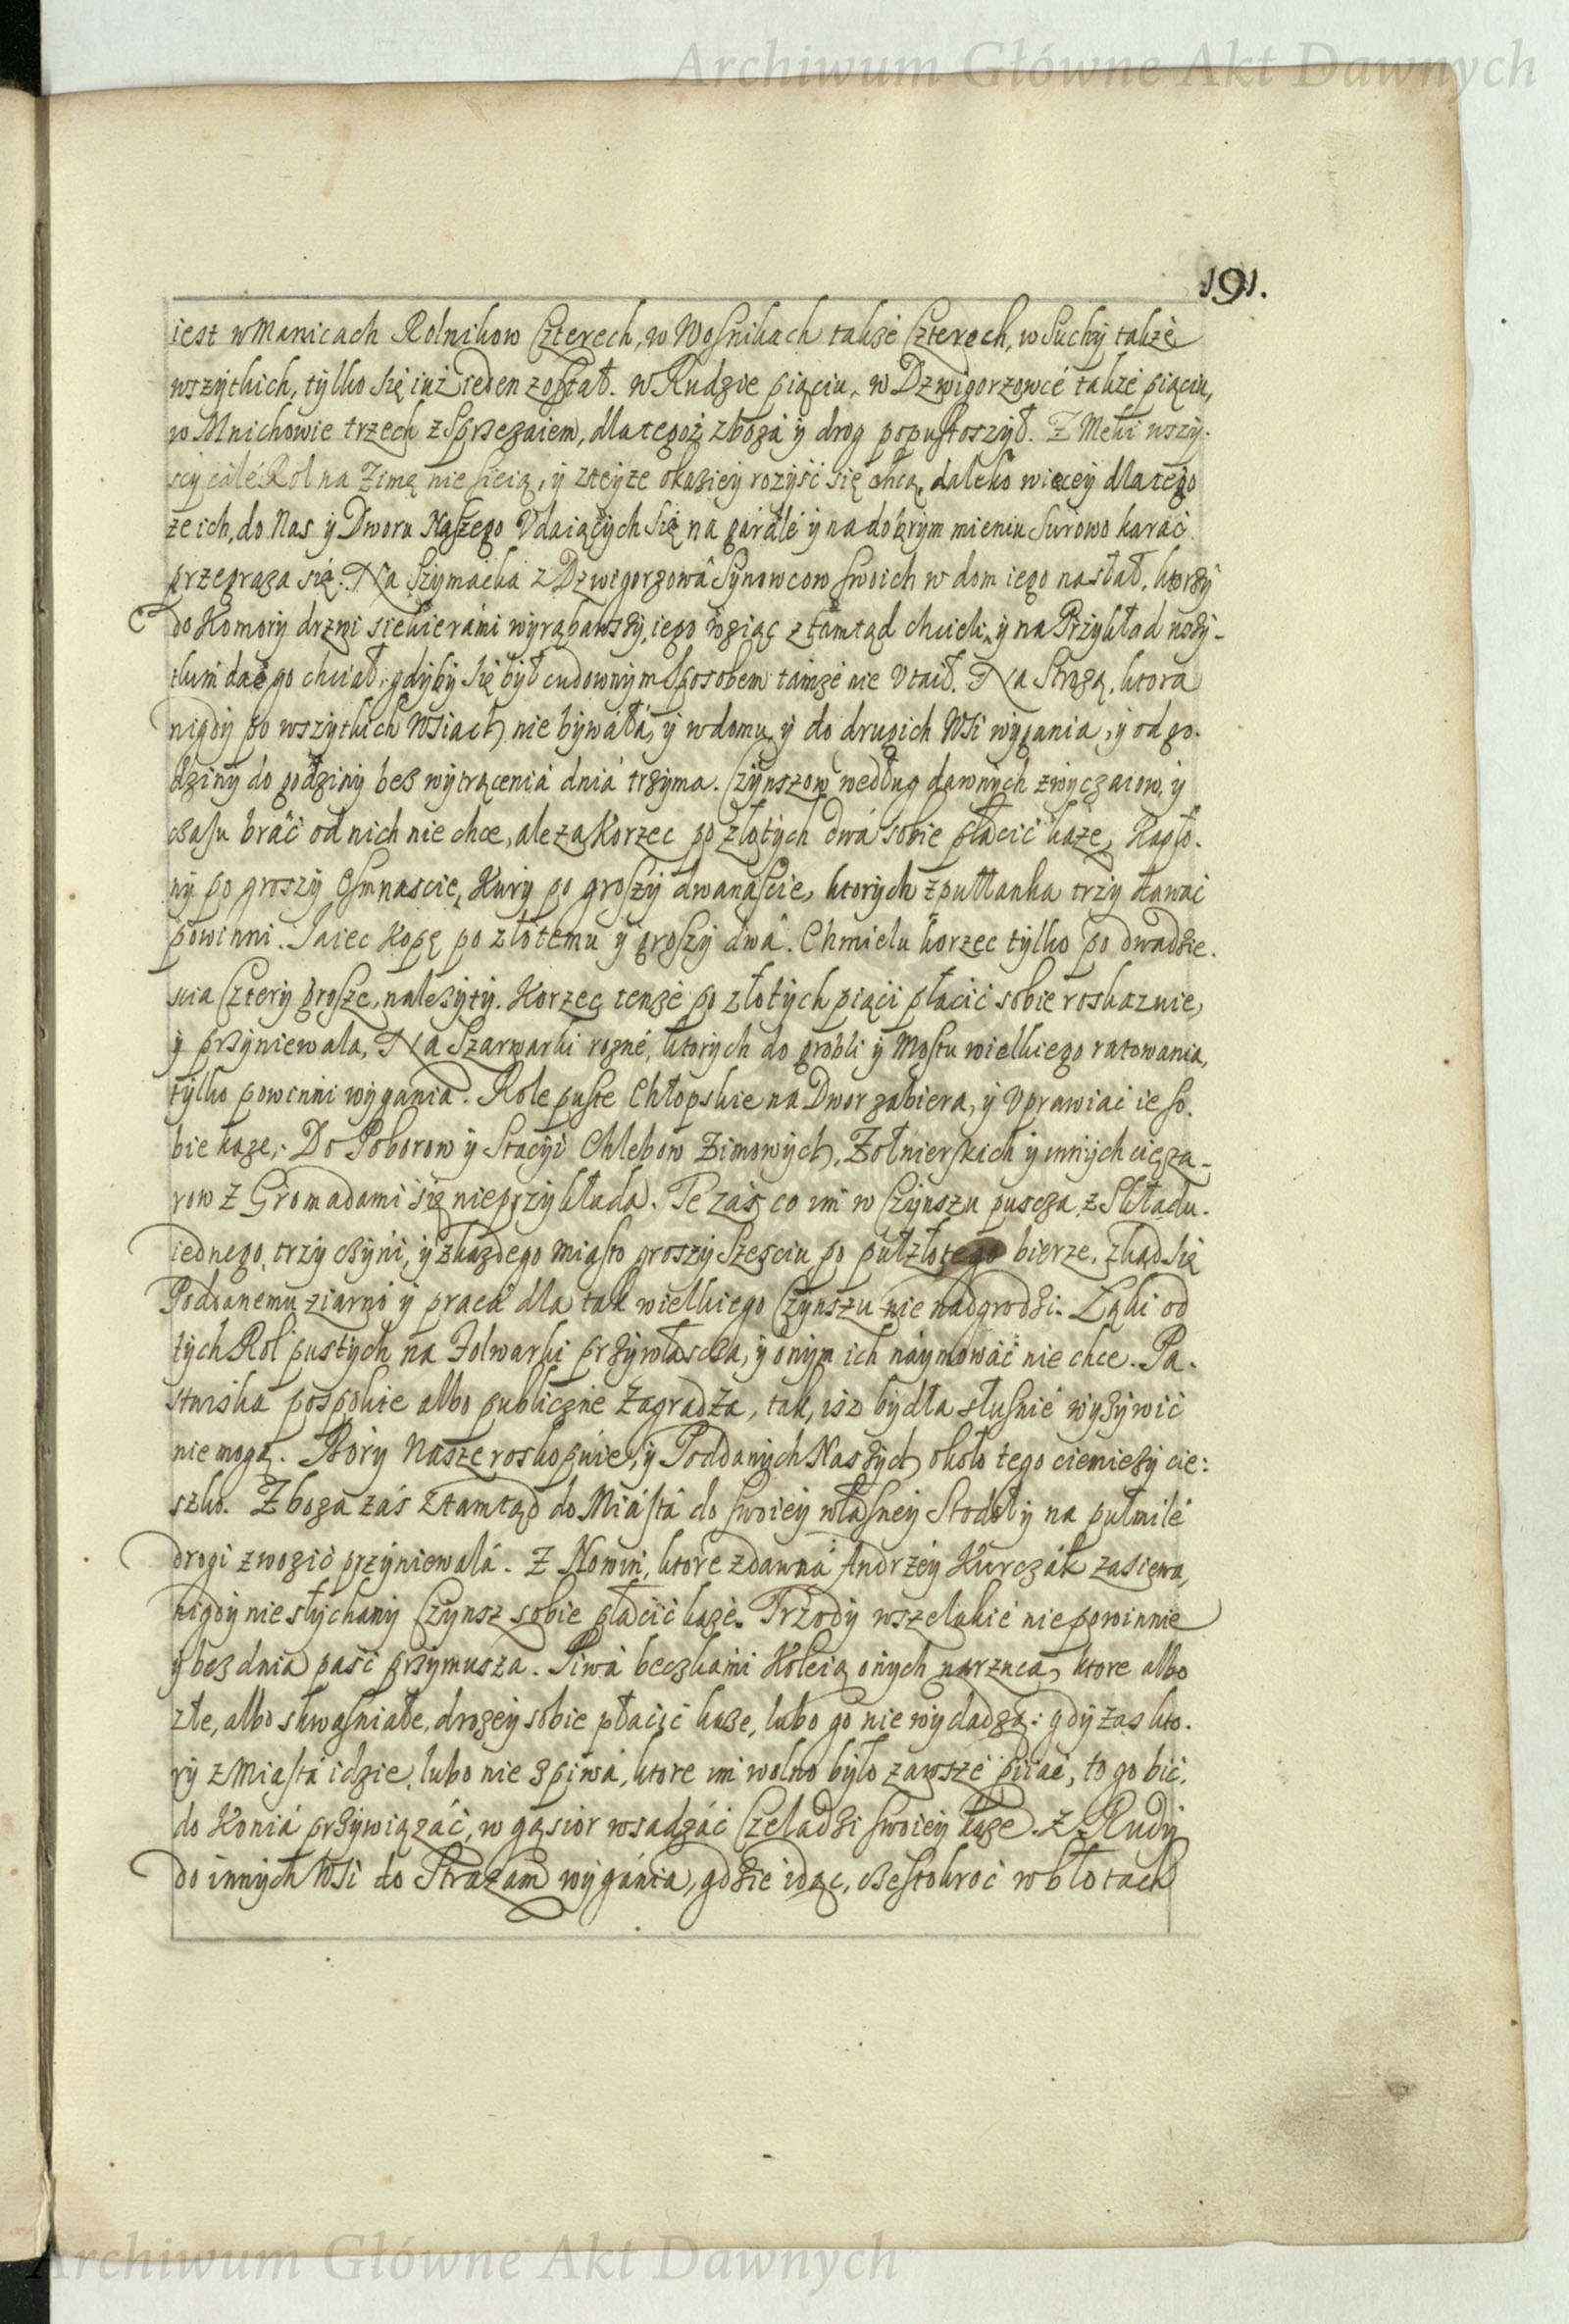 Archiwum Główne Akt Dawnych
191.
iest w Manicach Rolnikow Czterech, w Wosnikach także Czterech, w Suchy także
wszytkich, tylko się iuż ieden został. w Rudzie piąciu, w Dzwigorzowcé także piąciu,
w Mnichowie trzech z Sprzeżaiem, dla tegoż zboża ÿ drog popustoszył. Z Meki wszy-
scy cale Rol na Zimę nie sieią, ÿ zteÿże okaziey rozyść się chcą, daleko więcey dla tego
że ich, do Nas ÿ Dworu Naszego Vdaiących się na gardle ÿ na dobrym mieniu surowo karać
przegraża się. Na Szymacka z Dzwigorzowa Synowcow swoich w dom iego nasłał, ktorzy
do Komory drzwi siekierami wyrąbawszy, iego wziąc z tamtąd chcieli, ÿ na Przykład wszy-
tkim dać go chciał, gdyby się był cudownym sposobem tamże nie Vtaił. Na Strożą, ktora
nigdy po wszytkich Wsiach nie bywała, ÿ w domu, ÿ do drugich Wsi wygania, ÿ od go-
dziny do godziny bez wytrącenia dnia trzyma. Czynszow według dawnych zwyczaiow, ÿ
czasu brać od nich nie chce, ale za Korzec po złotych dwa sobie płacić każe, Kapło-
ny po groszy Osmnascie, Kury po groszy dwanascie, ktorych z pułłanka trzy dawać
powinni. Iaiec Kopę po złotemu ÿ groszy dwa. Chmielu korzec tylko po dwadzie-
scia Cztery grosze, należyty. Korzec tenże po złotych piąci płacić sobie roskazuie,
ÿ przyniewala, Na Szarwarki rożné, ktorych do grobli ÿ Mostu wielkiego ratowania,
tylko powinni wygania. Role puste Chłopskie na Dwor zabiera, ÿ Vprawiać ie so-
bie każe, Do Poborow ÿ Stacyi Chlebow Zimowych, Żołnierskich ÿ innych cięża-
row z Gromadami się nieprzykłada. Te zaś co im w Czynszu puscza, z Składu
iednego, trzy czyni, ÿ z każdego miasto groszy Szesciu, po pułzłotego bierze, zkąd się
Poddanemu ziarno ÿ praca dla tak wielkiego Czynszu nie nadgrodzi. Łąki od
tych Rol pustych na Folwarki przywłascza, ÿ onym ich naymować nie chce. Pa-
stwiska pospolite albo publicznie zagradza, tak, isz bydła słusnie wyżywić
nie mogą. Bory Nasze roskopuie, ÿ Poddanych Naszych około tego ciemieży cie:
szko. Zboża zaś ztamtąd do Miasta do swoiey własney Stodoły na pułmile
drogi zwozić przyniewala. Z Nowin, ktore zdawna Andrzey Kurczak zasiewa,
nigdy nie słychany Czynsz sobie płacić każe. Trzody wszelakie niepowinnie
ÿ bez dnia paść przymusza. Piwa beczkami Koleią onych narzuca, ktore albo
złe, albo skwaśniałe, drożey sobie płacić każe, lubo go nie wydadzą: gdy zaś kto-
ry z Miasta idzie, lubo nie z piwa, ktore im wolno było zawsze piiać, to go bić,
do Konia przywiązać, w gąsior wsadzać Czeladzi swoiey każe. Z Rudy
do innych Wsi do Strażam wygania, gdzie idąc, czestokroć w błotach
Archiwum Główne Akt Dawnych